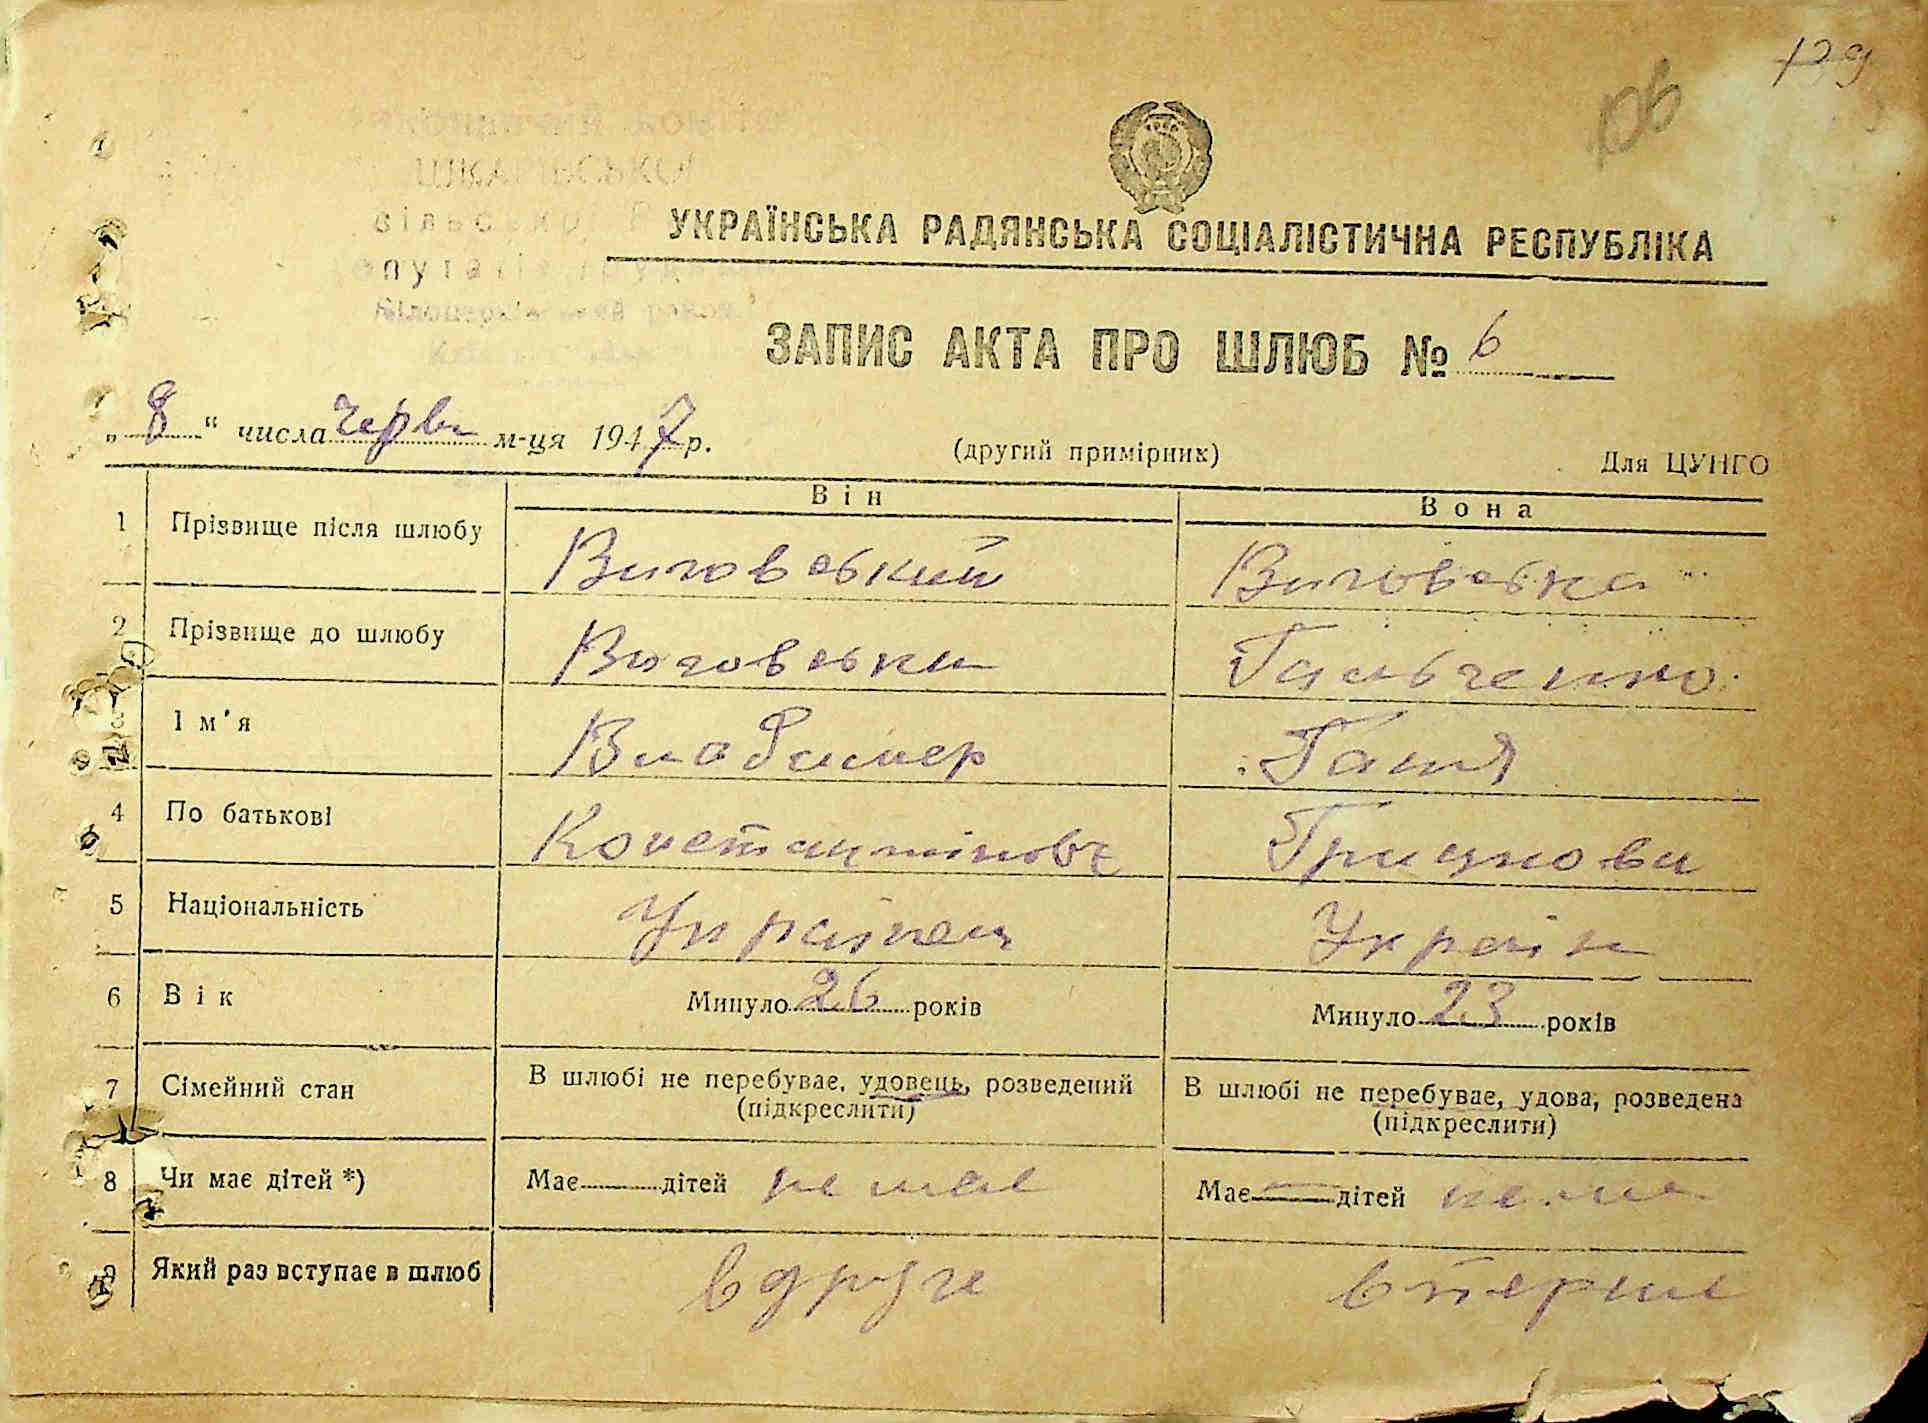 129
106
ШКАРІВСЬКОЇ
УКРАЇНСЬКА РАДЯНСЬКА СОЦІАЛІСТИЧНА РЕСПУБЛІКА
ЗАПИС АКТА ПРО ШЛЮБ № 6
„ 8 “ числа черв м-ця 1947 р. (другий примірник) Для ЦУНГО
Він Вона
1 Прізвище після шлюбу Виговський Виговська
2 Прізвище до шлюбу Виговськи Гальченко
3 Ім'я Владимер Ганя
4 По батькові Констант­іновч Грицкови
5 Національність Українец Україн
6 Вік Минуло 26 років Минуло 23 років
7 Сімейний стан В шлюбі не перебуває, удовець, розведений В шлюбі не перебуває, удова, розведена
(підкреслити) (підкреслити)
8 Чи має дітей *) Має дітей не має Має дітей не ма
9 Який раз вступає в шлюб вдруге вперше